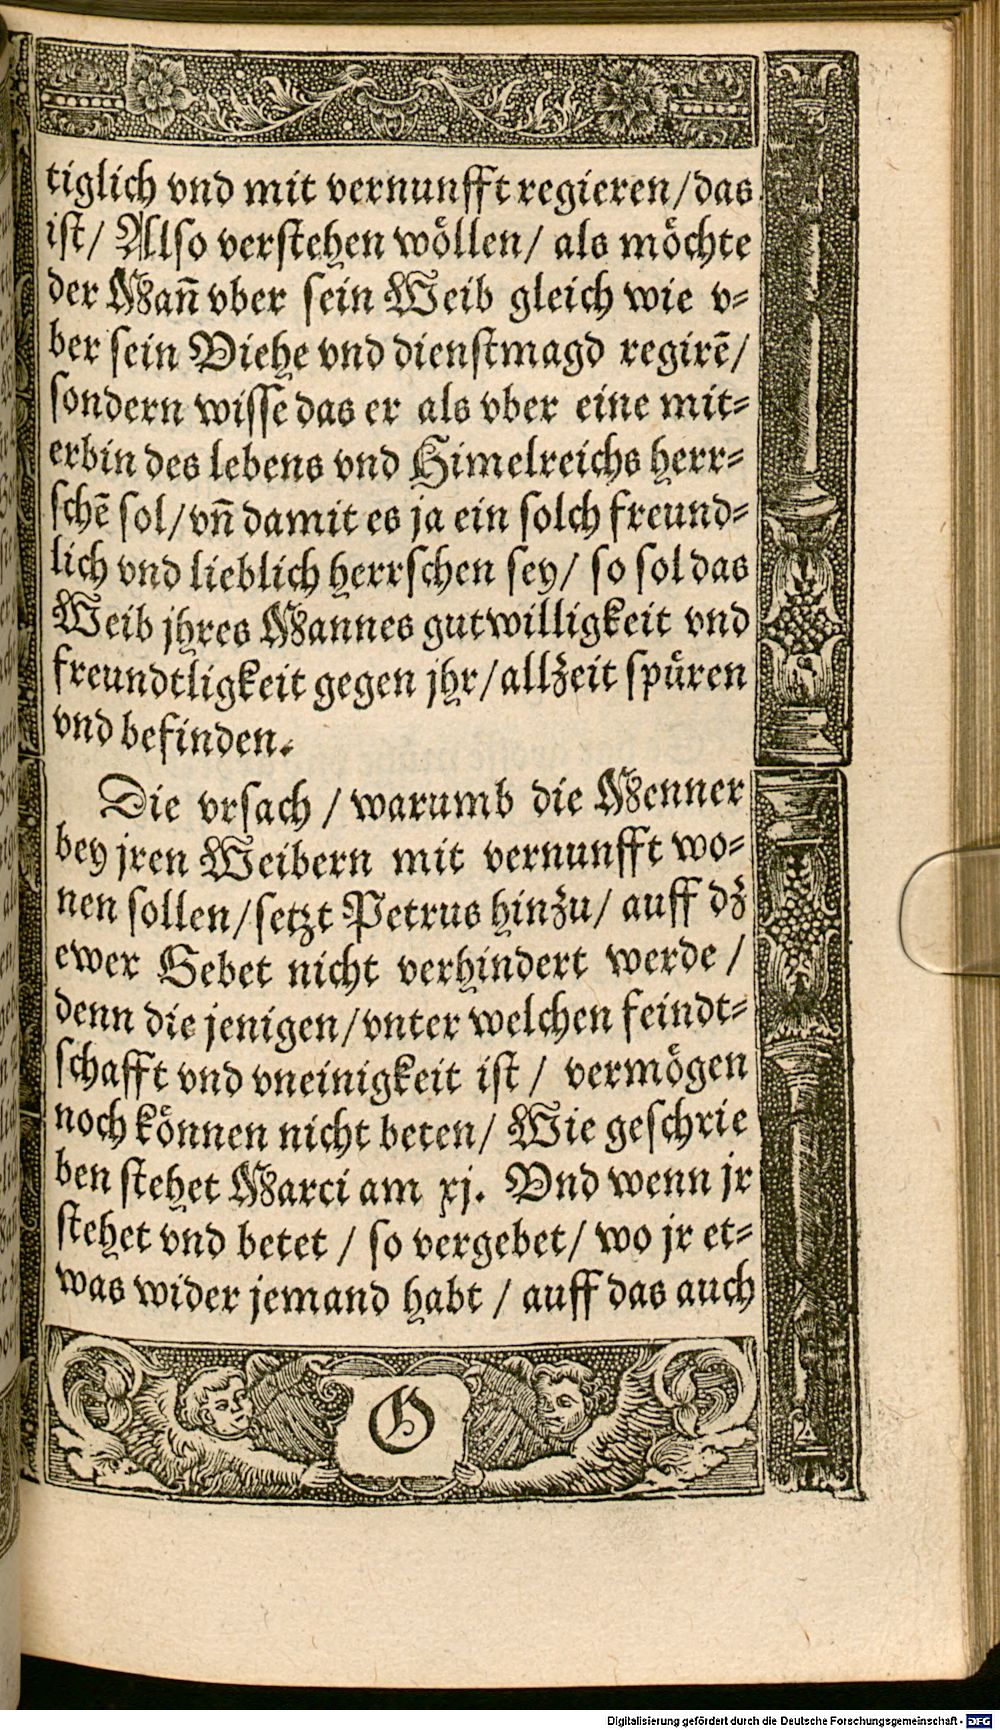 tiglich vnd mit vernunfft regieren/das
ist/ Also verstehen wöllen/ als möchte
der Mañ vber sein Weib gleich wie v=
ber sein Viehe vnd dienstmagd regirẽ/
sondern wisse das er als vber eine mit=
erbin des lebens vnd Himelreichs herr=
schẽ sol/ vñ damit es ja ein solch freund=
lich vnd lieblich herrschen sey/ so sol das
Weib jhres Mannes gutwilligkeit vnd
freundtligkeit gegen jhr/allzeit spüren
vnd befinden.
Die vrsach / warumb die Menner
bey jren Weibern mit vernunfft wo=
nen sollen/setzt Petrus hinzu/ auff dz
ewer Gebet nicht verhindert werde /
denn die jenigen/vnter welchen feindt=
schafft vnd vneinigkeit ist / vermögen
noch können nicht beten/ Wie geschrie
ben stehet Marci am xj. Vnd wenn jr
stehet vnd betet / so vergebet/ wo jr et=
was wider jemand habt / auff das auch
G
Digitalisierung gefördert durch die Deutsche Forschungsgemeinschaft - DFG